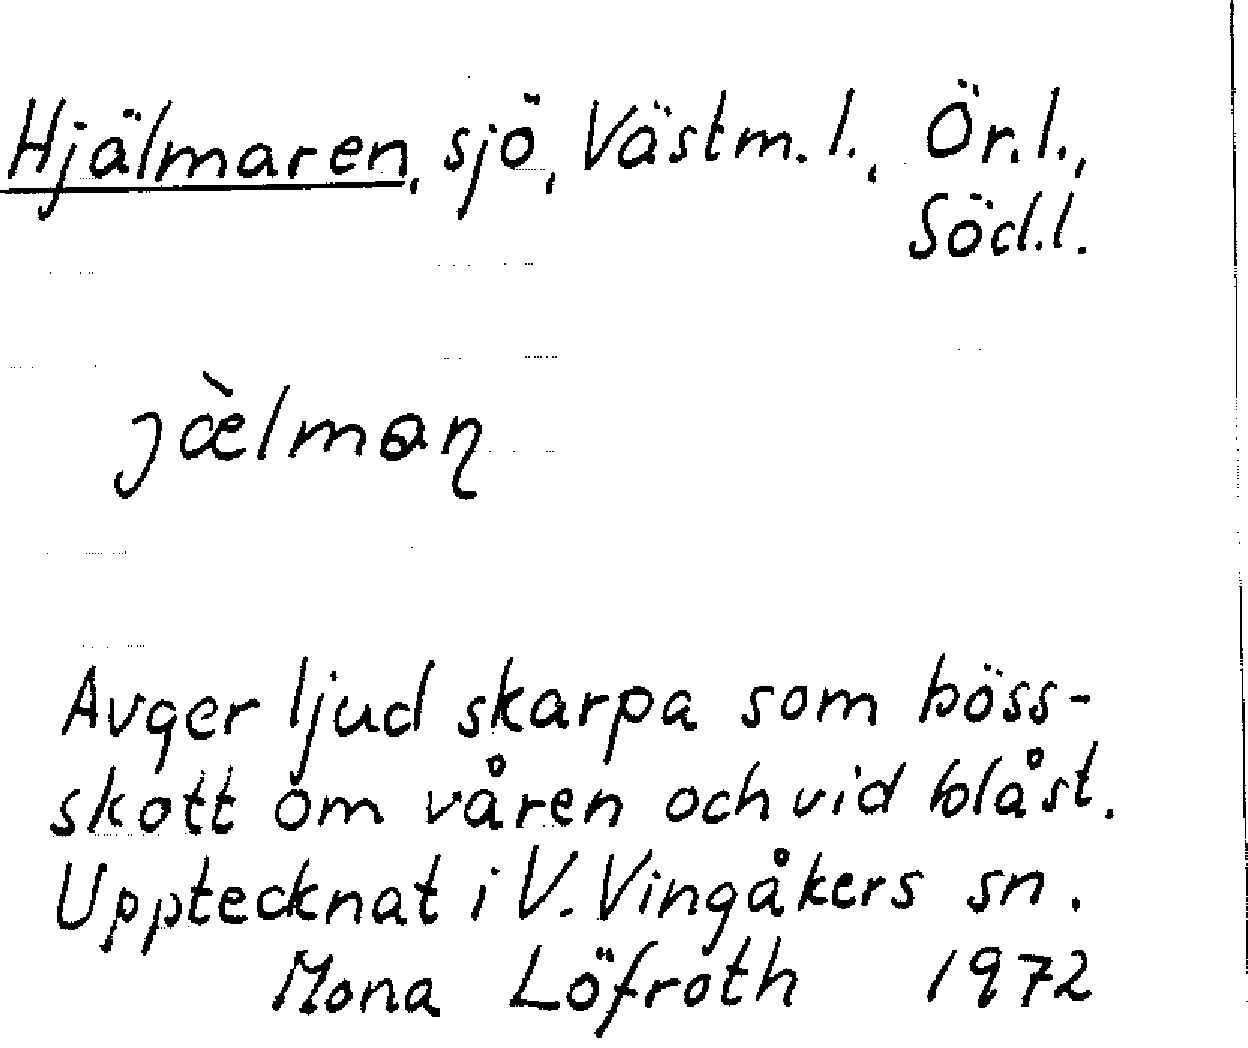 Hjälmaren, sjö, Västm. l., Ör. l.,
Söd. l.
jæ̀lmaɳ
Avger ljud skarpa som böss-
skott om våren och vid blåst.
Upptecknat i V. Vingåkers sn.
Mona Löfroth 1972